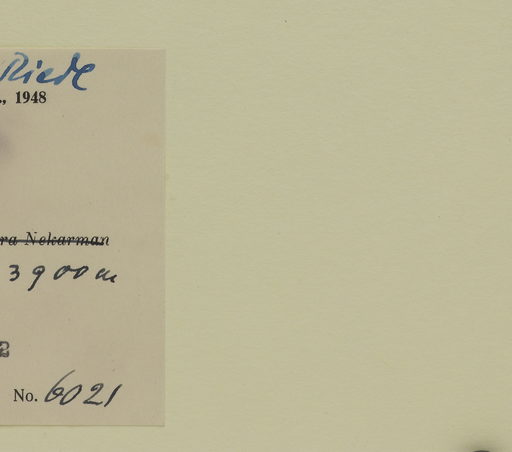 Riedl
., 1948
ra Nekarman
3900m
2
No. 6021